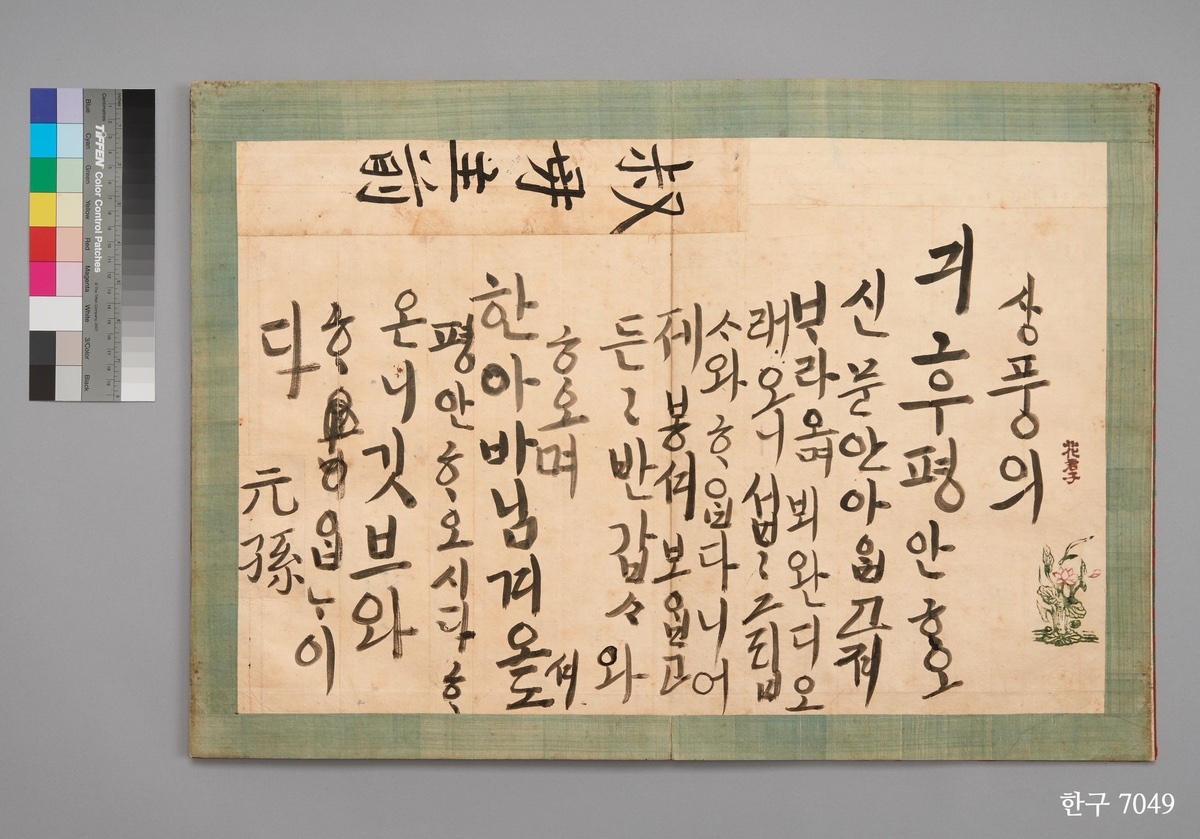 상풍의
긔후평안ᄒᆞ오
신문안아ᄋᆞᆸ고져
ᄇᆞ라오며뵈완디오
래오니섭〻그립
ᄉᆞ와ᄒᆞᄋᆞᆸ다니어
제봉셔보ᄋᆞᆸ고
든〻반갑ᄉᆞ와
ᄒᆞ오며
한아바님겨오셔도
평안ᄒᆞ오시다ᄒᆞ
온니깃브와
ᄒᆞᄋᆞᆸᄂᆞ이
다
元孫
叔母主前
花君子
TIFFEN Color Control Patches
Blue Cyan Green Yellow Red Magenta White 3/Color Black
한구 7049